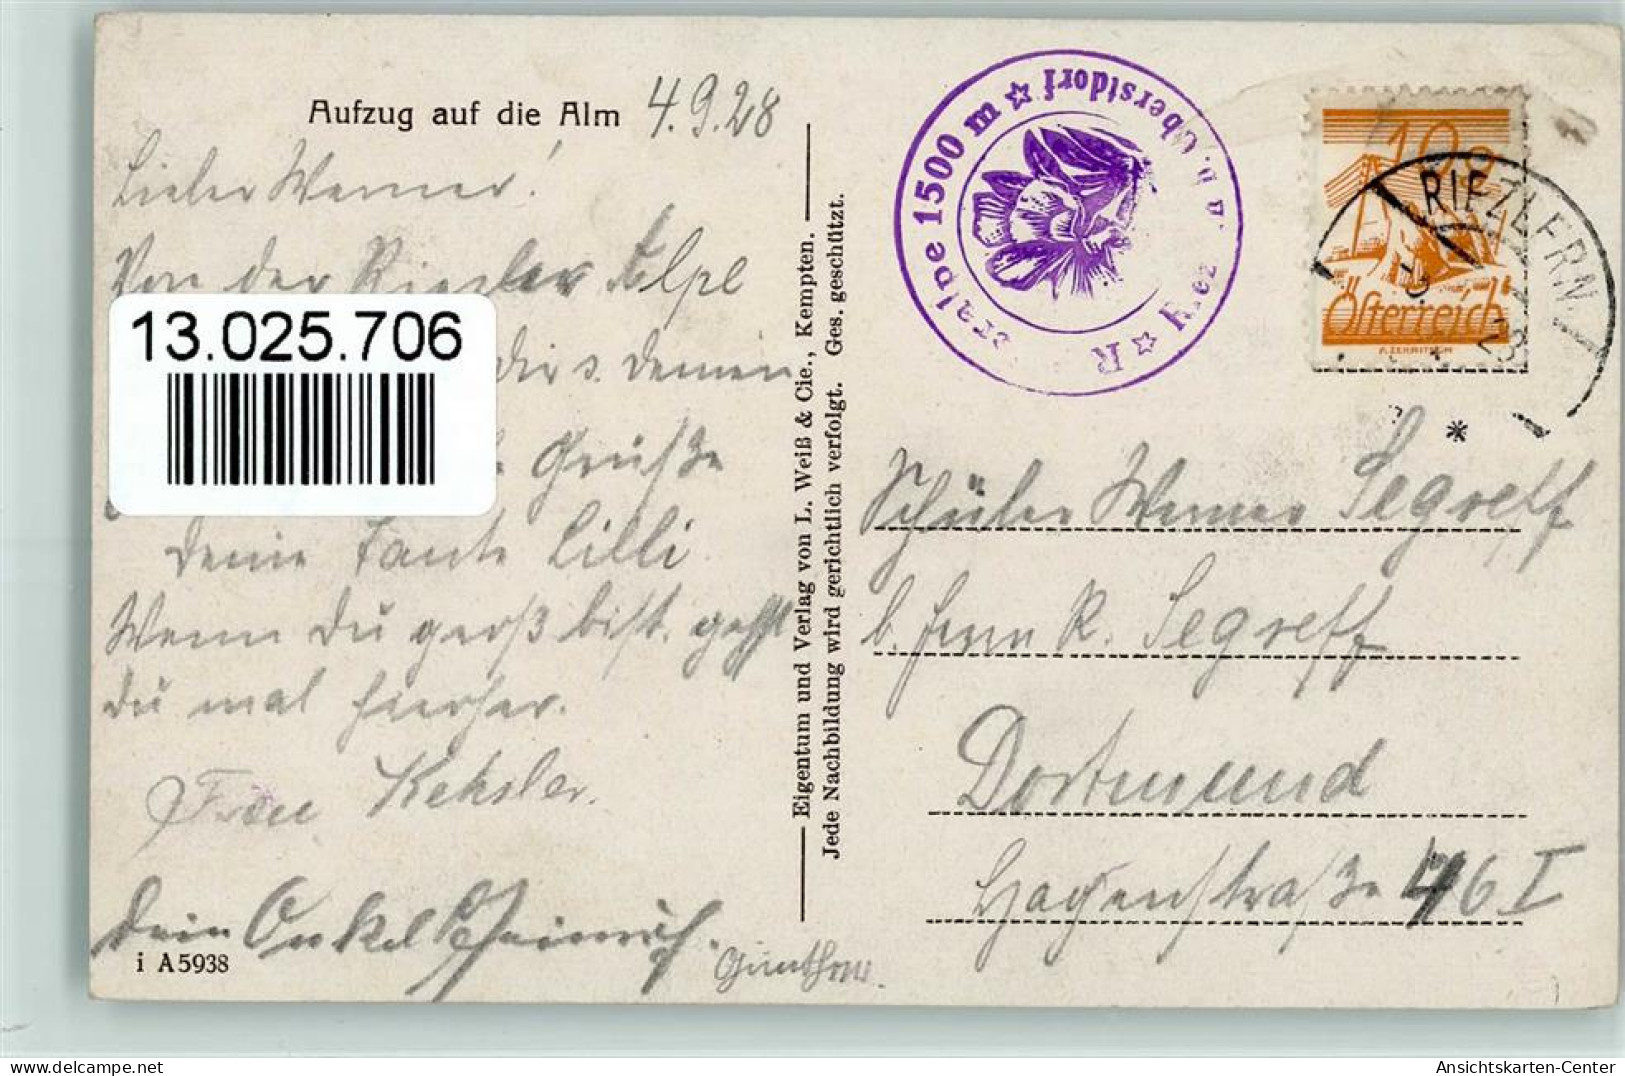 Aufzug auf die Alm 4.9.28
Lieber Werner!
Von der Riezler Alpe
dir u. Deinen
Grüße
Deine Tante Lilli
Wenn Du groß bist, gehst
Du mal hierher.
Frau Kehsler.
Dein Onkel Heinrich.
Günther.
i A 5938
13.025.706
Eigentum und Verlag von L. Weiß & Cie., Kempten.
Jede Nachbildung wird gerichtlich verfolgt. Ges. geschützt.
eralpe 1500 m ☆ Oberstdorf ☆ Riez
10g
Österreich
RIEZLERN
28
*
Schüler Werner Segreff
b. Herrn R. Segreff
Dortmund
Hagenstraße 46 I
Ansichtskarten-Center